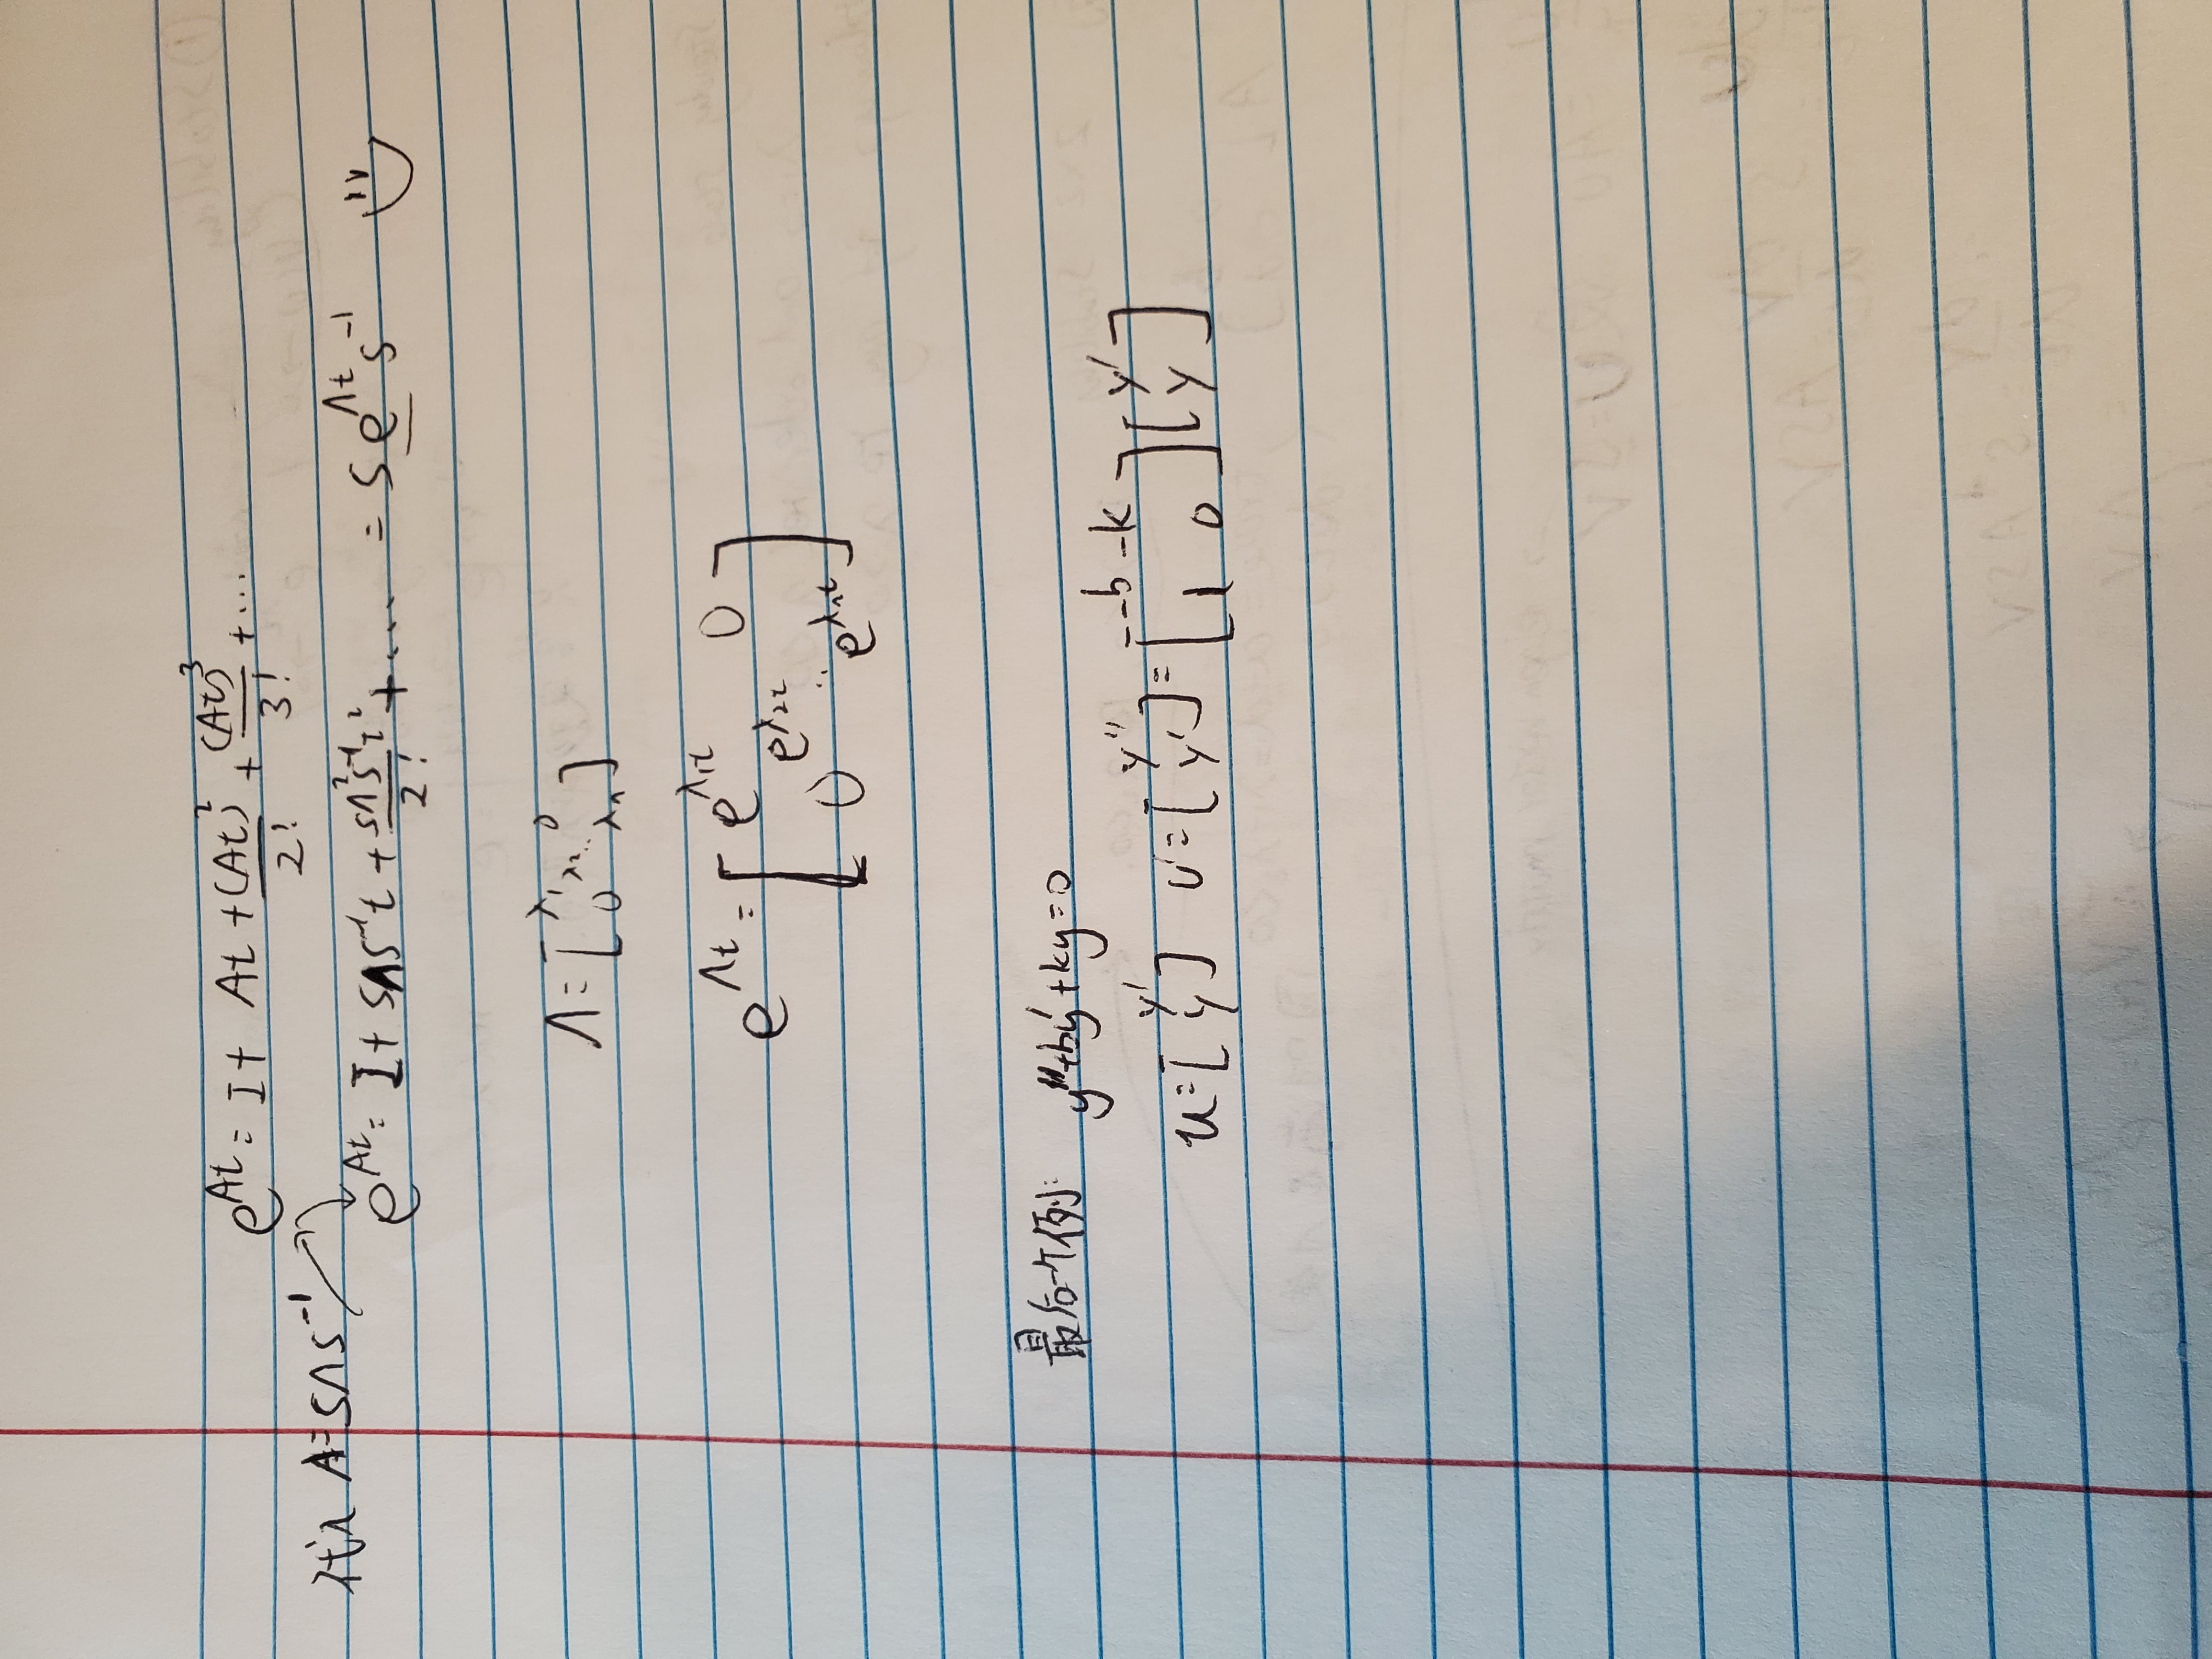 e^{At} = I + At + (At)²/2! + (At)³/3! + ...
代入 A = SΛS⁻¹
e^{At} = I + SΛS⁻¹t + SΛ²S⁻¹t²/2! + ... = S e^{Λt} S⁻¹
Λ = [ λ₁ 0
λ₂ ..
0 λn ]
e^{Λt} = [ e^{λ₁t} 0
e^{λ₂t}
0 .. e^{λnt} ]
最后一个例: y'' + by' + ky = 0
u = [ y' y ] u' = [ y'' y' ] = [ -b -k 1 0 ] [ y' y ]